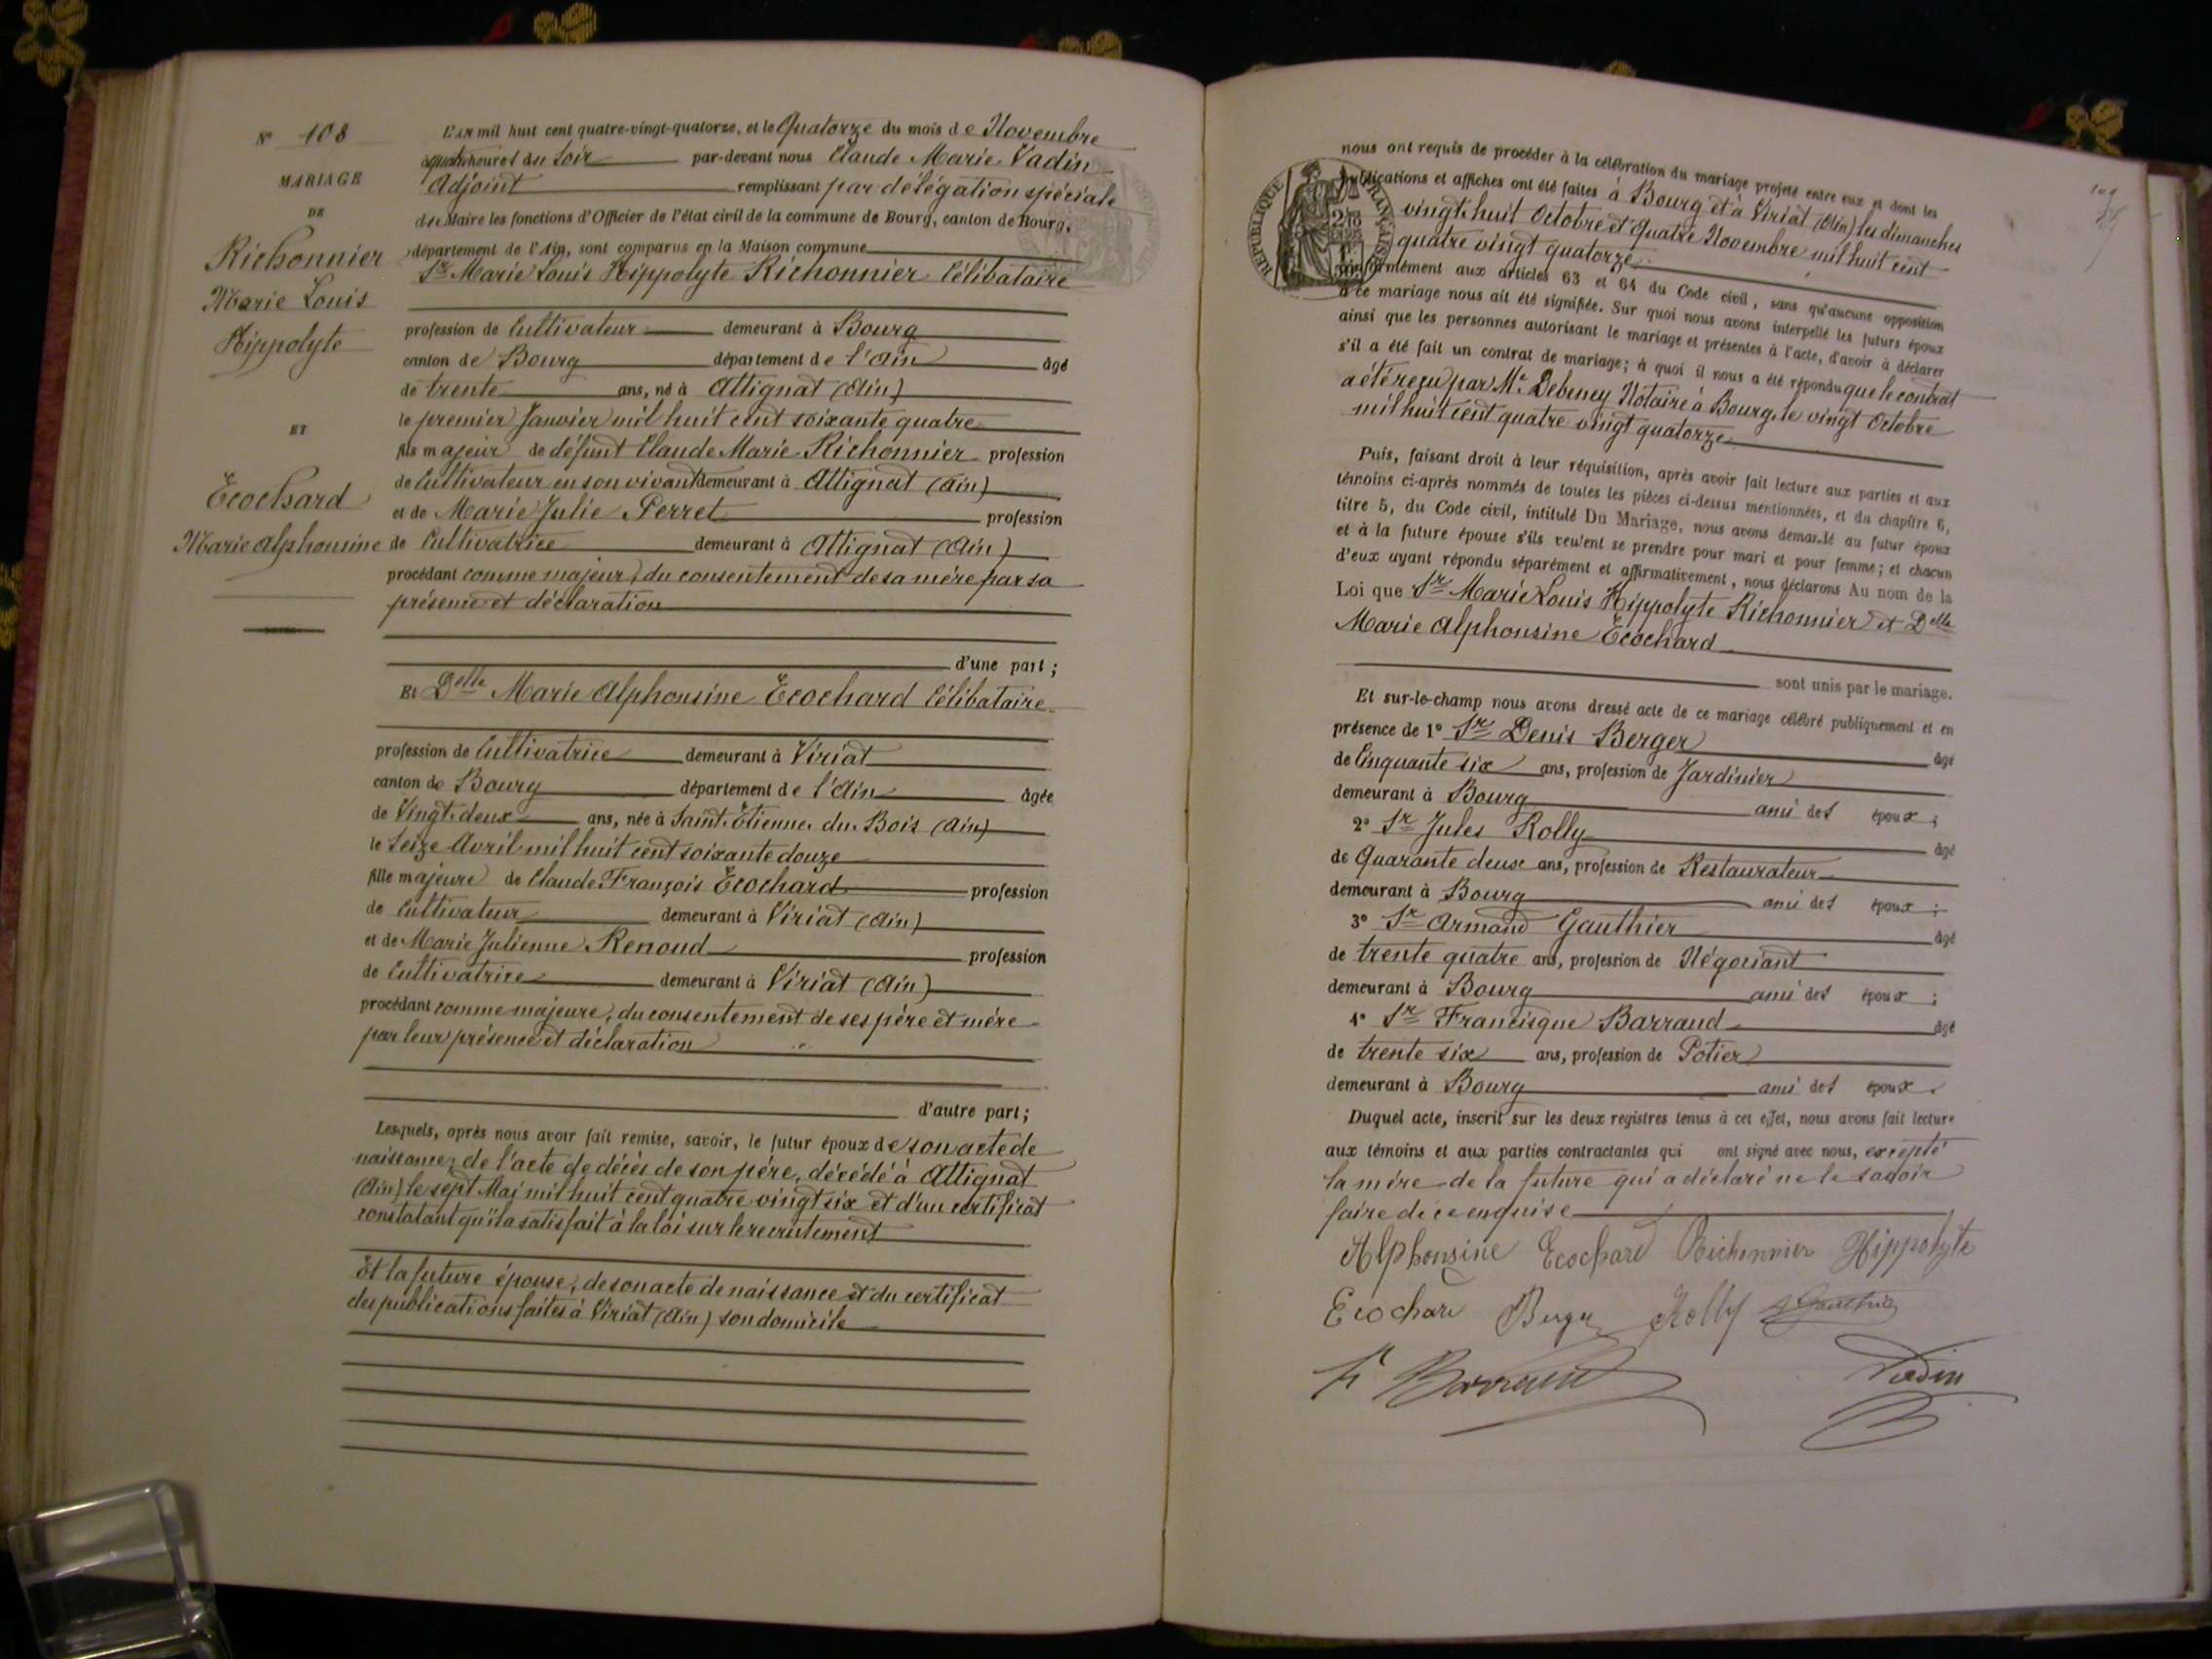 N° 108
MARIAGE
DE
Richonnier
Marie Louis
Hippolyte
ET
Ecochard
Marie Alphonsine
L'an mil huit cent quatre-vingt-quatorze, et le Quatorze du mois de Novembre
à quatre heures du soir par-devant nous Claude Marie Vadin
Adjoint remplissant par délégation spéciale
du Maire les fonctions d'Officier de l'état civil de la commune de Bourg, canton de Bourg,
département de l'Ain, sont comparus en la Maison commune
Sr Marie Louis Hippolyte Richonnier Célibataire
profession de Cultivateur demeurant à Bourg
canton de Bourg département de l'Ain âgé
de trente ans, né à Attignat (Ain)
le premier Janvier mil huit cent soixante quatre
fils majeur de défunt Claude Marie Richonnier profession
de Cultivateur en son vivant demeurant à Attignat (Ain)
et de Marie Julie Perret profession
de Cultivatrice demeurant à Attignat (Ain)
procédant comme majeur, du consentement de sa mère par sa
présence et déclaration
d'une part ;
Et Delle Marie Alphonsine Ecochard Célibataire
profession de Cultivatrice demeurant à Viriat
canton de Bourg département de l'Ain âgée
de Vingt deux ans, née à Saint Etienne du Bois (Ain)
le Seize Avril mil huit cent soixante douze
fille majeure de Claude François Ecochard profession
de Cultivateur demeurant à Viriat (Ain)
et de Marie Julienne Renoud profession
de Cultivatrice demeurant à Viriat (Ain)
procédant comme majeure, du consentement de ses père et mère
par leur présence et déclaration
d'autre part ;
Lesquels, après nous avoir fait remise, savoir, le futur époux de son acte de
naissance; de l'acte de décès de son père, décédé à Attignat
(Ain) le sept Mai mil huit cent quatre vingt six et d'un certificat
constatant qu'il a satisfait à la loi sur le recrutement
Et la future épouse, de son acte de naissance et du certificat
des publications faites à Viriat (Ain) son domicile
RÉPUBLIQUE FRANÇAISE
nous ont requis de procéder à la célébration du mariage projeté entre eux et dont les
publications et affiches ont été faites à Bourg et à Viriat (Ain) les dimanches
vingt huit Octobre et Quatre Novembre mil huit cent
quatre vingt quatorze
conformément aux articles 63 et 64 du Code civil, sans qu'aucune opposition
à ce mariage nous ait été signifiée. Sur quoi nous avons interpellé les futurs époux
ainsi que les personnes autorisant le mariage et présentes à l'acte, d'avoir à déclarer
s'il a été fait un contrat de mariage; à quoi il nous a été répondu que le contrat
a été reçu par Me Debeney Notaire à Bourg, le vingt Octobre
mil huit cent quatre vingt quatorze
Puis, faisant droit à leur réquisition, après avoir fait lecture aux parties et aux
témoins ci-après nommés de toutes les pièces ci-dessus mentionnées, et du chapitre 6,
titre 5, du Code civil, intitulé Du Mariage, nous avons demandé au futur époux
et à la future épouse s'ils veulent se prendre pour mari et pour femme; et chacun
d'eux ayant répondu séparément et affirmativement, nous déclarons Au nom de la
Loi que Sr Marie Louis Hippolyte Richonnier et Delle
Marie Alphonsine Ecochard
sont unis par le mariage.
Et sur-le-champ nous avons dressé acte de ce mariage célébré publiquement et en
présence de 1° Sr Denis Berger âgé
de Cinquante six ans, profession de Jardinier
demeurant à Bourg ami des époux ;
2° Sr Jules Rolly âgé
de Quarante deux ans, profession de Restaurateur
demeurant à Bourg ami des époux ;
3° Sr Armand Gauthier âgé
de trente quatre ans, profession de Négociant
demeurant à Bourg ami des époux ;
4° Sr Francisque Barraud âgé
de trente six ans, profession de Potier
demeurant à Bourg ami des époux.
Duquel acte, inscrit sur les deux registres tenus à cet effet, nous avons fait lecture
aux témoins et aux parties contractantes qui ont signé avec nous, excepté
la mère de la future qui a déclaré ne le savoir
faire de ce enquise
Alphonsine Ecochard Richonnier Hippolyte
Ecochard Berger Rolly Gauthier
Fr Barraud Vadin